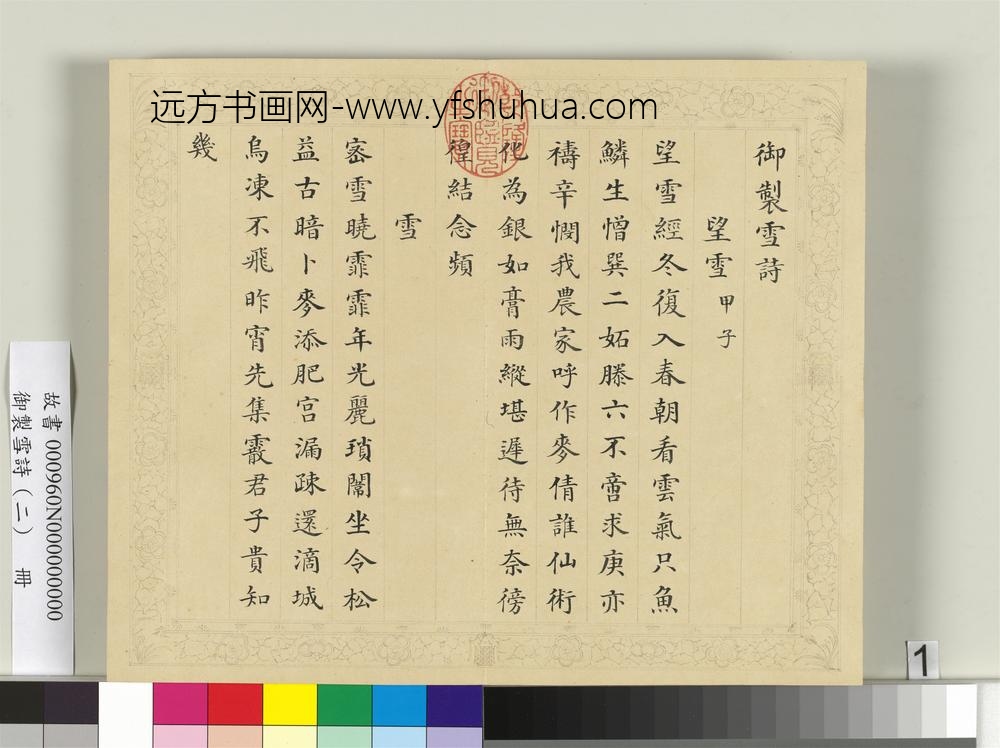 远方书画网-www.yfshuhua.com
御製雪詩
望雪 甲子
望雪經冬復入春朝看雲氣只魚
鱗生憎巽二妬滕六不啻求庚亦
禱辛憫我農家呼作麥倩誰仙術
化為銀如膏雨縱堪遲待無奈徬
徨結念頻
雪
密雪曉霏霏年光麗瑣闈坐令松
益古暗卜麥添肥宮漏疎還滴城
烏凍不飛昨宵先集霰君子貴知
幾
故書 000960N000000000
御製雪詩(二) 冊
1